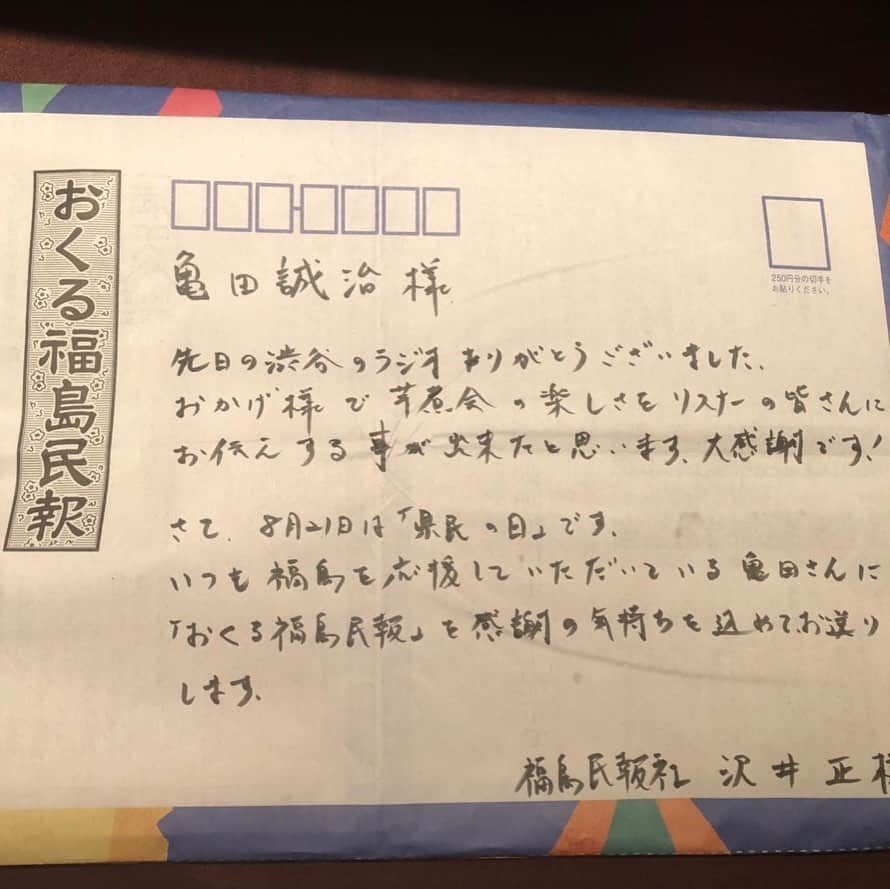 おくる福島民報
250円分の切手を
お貼りください。
亀田誠治様
先日の渋谷のラジオありがとうございました。
おかげ様で芋煮会の楽しさをリスナーの皆さんに
お伝えする事が出来たと思います。大感謝です!
さて、8月21日は「県民の日」です。
いつも福島を応援していただいている亀田さんに
「おくる福島民報」を感謝の気持ちを込めてお送り
します。
福島民報社 沢井正